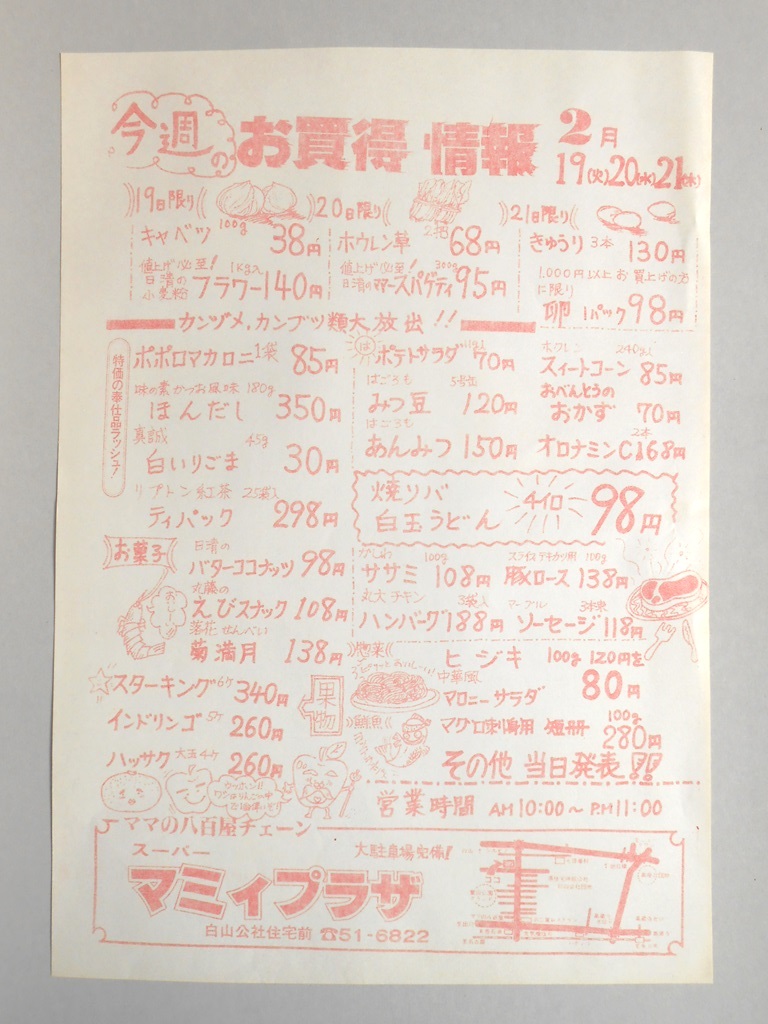 今週の お買得 情報 2月
19(火)20(水)21(木)
19日限り
キャベツ 100g 38円
値上げ必至! 日清の小麦粉 フラワー 1Kg入 140円
20日限り
ホウレン草 2把 68円
値上げ必至! 日清のママースパゲティ 300g 95円
21日限り
きゅうり 3本 130円
1,000円以上お買上げの方に限り
卵 1パック 98円
カンヅメ,カンブツ類大放出!!
特価の奉仕品ラッシュ!
ポポロマカロニ 1袋 85円
味の素かつお風味 180g
ほんだし 350円
真誠 45g
白いりごま 30円
リプトン紅茶 25袋入
ティパック 298円
ポテトサラダ 70円
はごろも 5号缶
みつ豆 120円
はごろも
あんみつ 150円
240g入
スィートコーン 85円
おべんとうの
おかず 70円
2本
オロナミンC 168円
焼ソバ
白玉うどん 4イロ 98円
お菓子
日清の
バターココナッツ 98円
えびスナック 108円
落花せんべい
菊満月 138円
かしわ 100g
ササミ 108円
スライス テキカツ用 100g
豚ロース 138円
丸大チキン 3袋入
ハンバーグ 188円
マーブル 3本束
ソーセージ 118円
スターキング 6ケ 340円
インドリンゴ 5ケ 260円
ハッサク 大玉4ケ 260円
果物
惣菜
ヒジキ 100g 120円を
80円
中華風
マロニーサラダ
鮮魚
マグロ刺鴫用 短冊 100g 280円
その他 当日発表!!
営業時間 AM10:00~PM11:00
ママの八百屋チェーン
スーパー
マミィプラザ
大駐車場完備!
白山公社住宅前 ☎51-6822
ココ